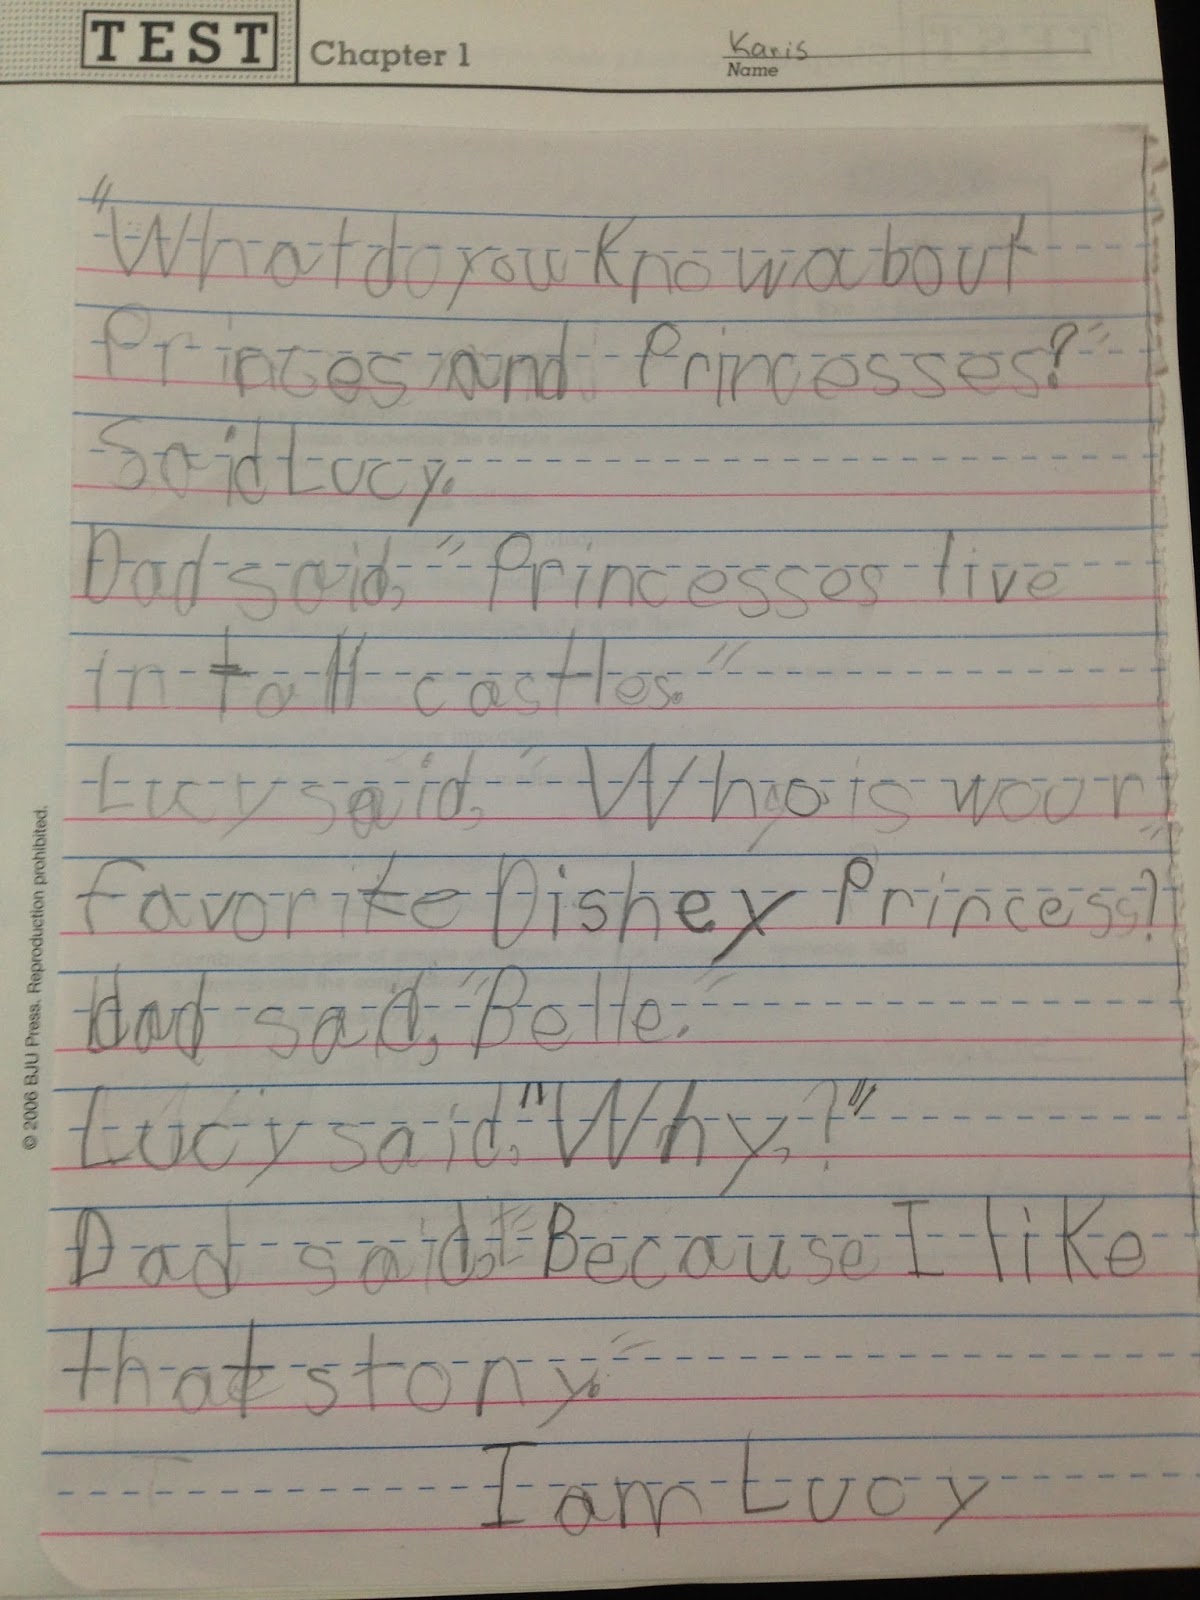 TEST Chapter 1 Karis
Name
"What do you Know about
Princes and Princesses?"
Said Lucy.
Dad said, "Princesses live
in tall castles."
Lucy said, "Who is woour
favorite Disney Princess?"
dad sad, "Belle."
Lucy said, "Why,?"
Dad said, "Because I like
that stony."
I am Lucy
© 2006 BJU Press. Reproduction prohibited.